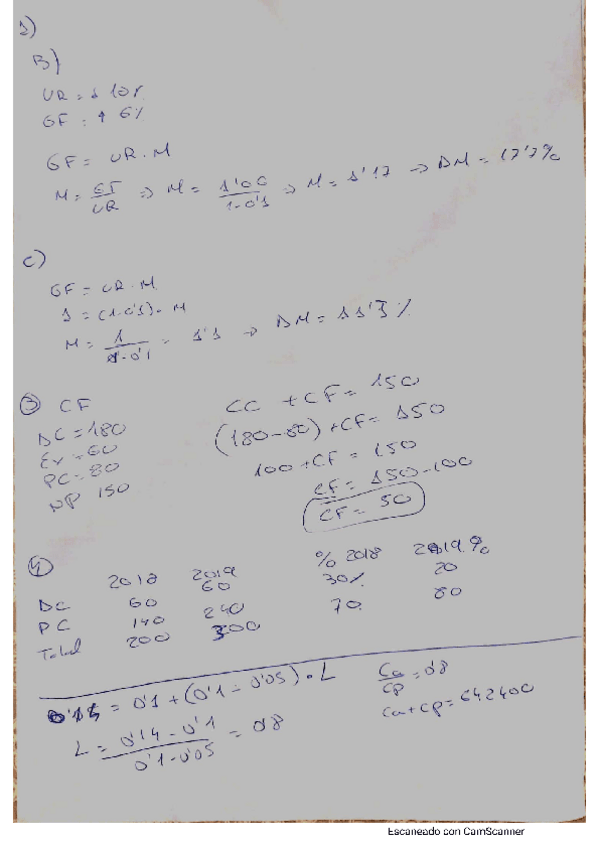 1)
B)
UR = ↓ 10%
GF = ↑ 6%
GF = UR · M
M = GF/UR => M = 1'06/1-0'1 => M = 1'17 -> ΔM = 17'7%
C)
GF = UR · M
1 = (1-0'1) · M
M = 1/1-0'1 = 1'1 -> ΔM = 11'1%
③ CF
DC = 180
Ex = 60
PC = 80
NP 150
CC + CF = 150
(180-80) + CF = 150
100 + CF = 150
CF = 150-100
CF = 50
④
2018 2019 % 2018 2019 %
DC 60 60 30% 20
PC 140 240 70 80
Total 200 300
= 0'1 + (0'1 - 0'05) · L
L = 0'14 - 0'1/0'1-0'05 = 0'8
Ca/Cp = 0'8
Ca + Cp = 642400
Escaneado con CamScanner